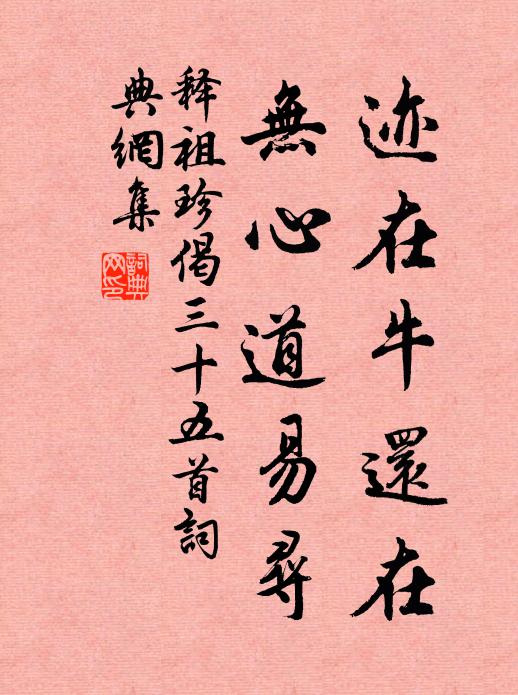 迹在牛還在
無心道易尋
释祖珍偈三十五首詞
典網集
詞典
网印